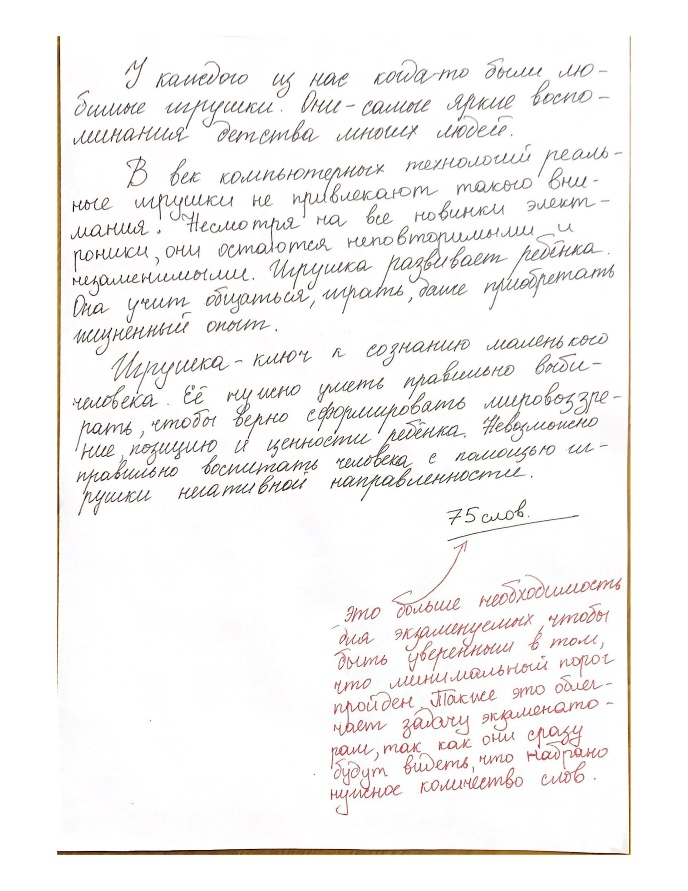 У каждого из нас когда-то были лю-
бимые игрушки. Они-самые яркие воспо-
минания детства многих людей.
В век компьютерных технологий реаль-
ные игрушки не привлекают такого вни-
мания. Несмотря на все новинки элект-
роники, они остаются неповторимыми и
незаменимыми. Игрушка развивает ребёнка.
Она учит общаться, играть, даже приобретать
жизненный опыт.
Игрушка - ключ к сознанию маленького
человека. Её нужно уметь правильно выби-
рать, чтобы верно сформировать мировоззре-
ние, позицию и ценности ребёнка. Невозможно
правильно воспитать человека с помощью иг-
рушки негативной направленности.
75 слов.
Это больше необходимость
для экзаменуемых, чтобы
быть уверенным в том,
что минимальный порог
пройден. Также это облег-
чает задачу экзаменато-
рам, так как они сразу
будут видеть, что набрано
нужное количество слов.